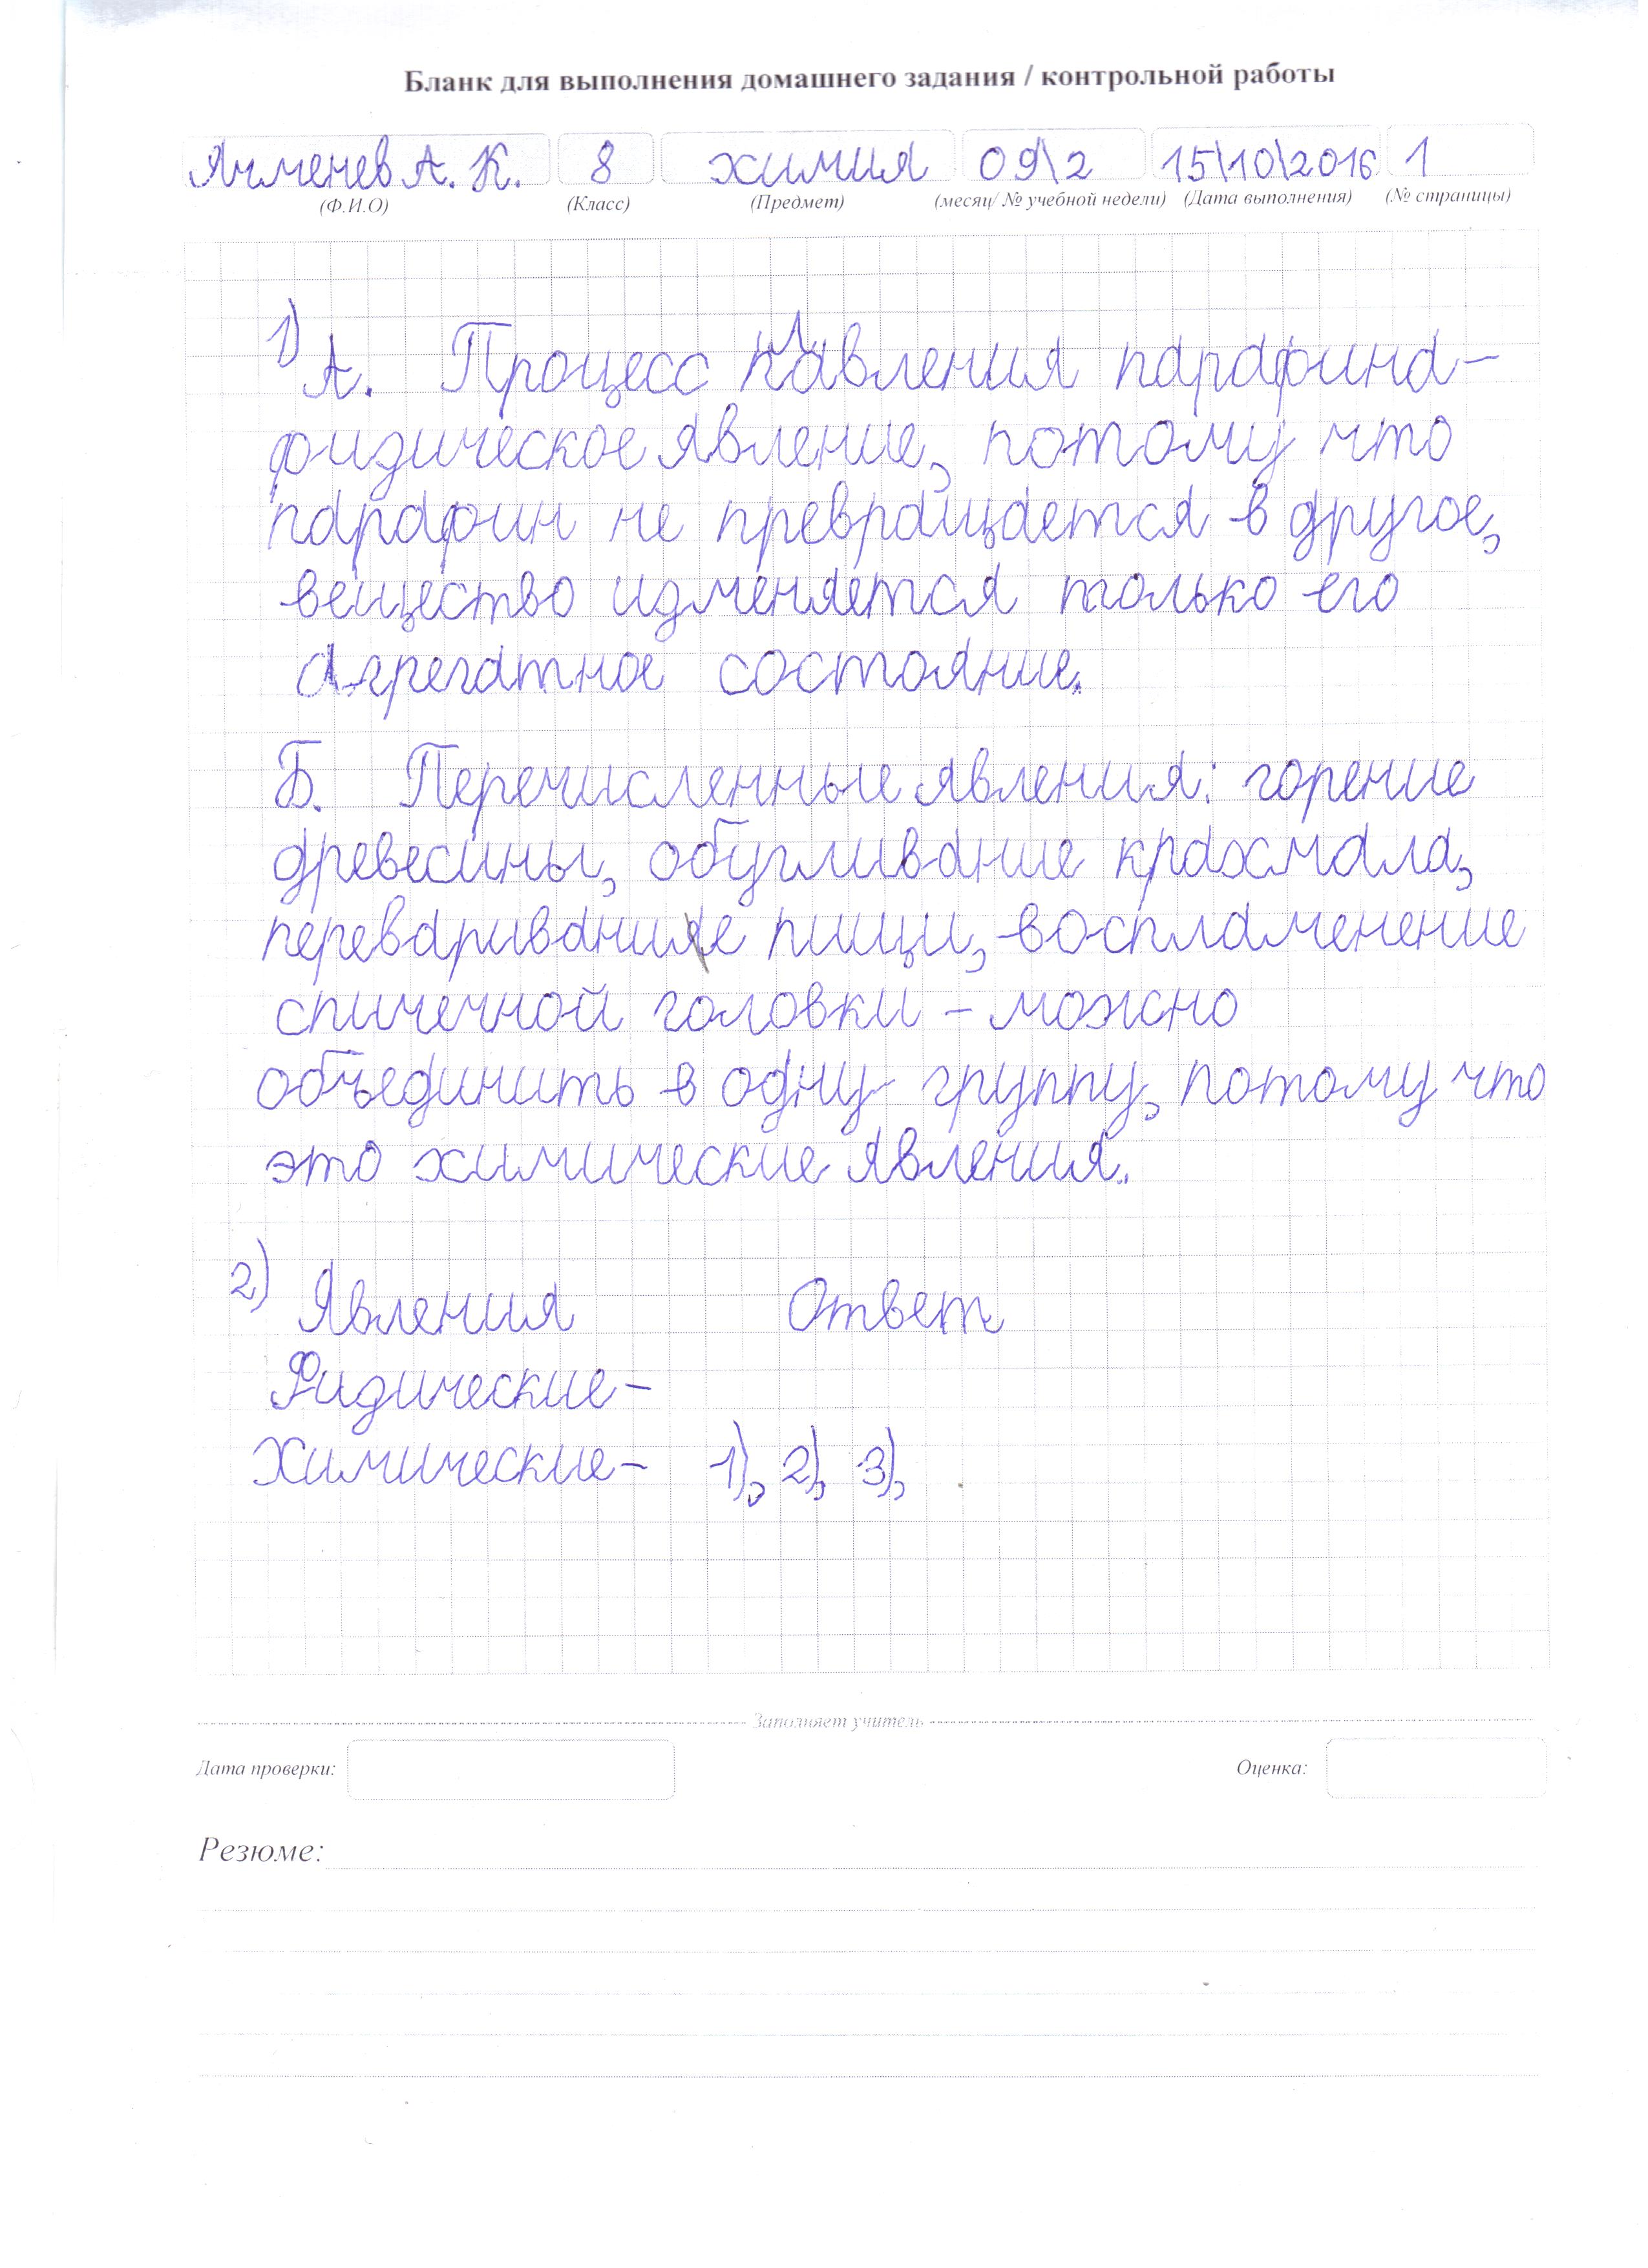 Бланк для выполнения домашнего задания / контрольной работы
Ячменев А. К. 8 химия 09\2 15\10\2016 1
(Ф.И.О) (Класс) (Предмет) (месяц/ № учебной недели) (Дата выполнения) (№ страницы)
1)
А. Процесс плавления парафина -
физическое явление, потому что
парафин не превращается в другое,
вещество изменяется только его
агрегатное состояние.
Б. Перечисленные явления: горение
древесины, обугливание крахмала,
переваривание пищи, воспламенение
спичечной головки - можно
объединить в одну группу, потому что
это химические явления.
2) Явления Ответ
Физические -
Химические - 1), 2), 3),
Заполняет учитель
Дата проверки: Оценка:
Резюме: